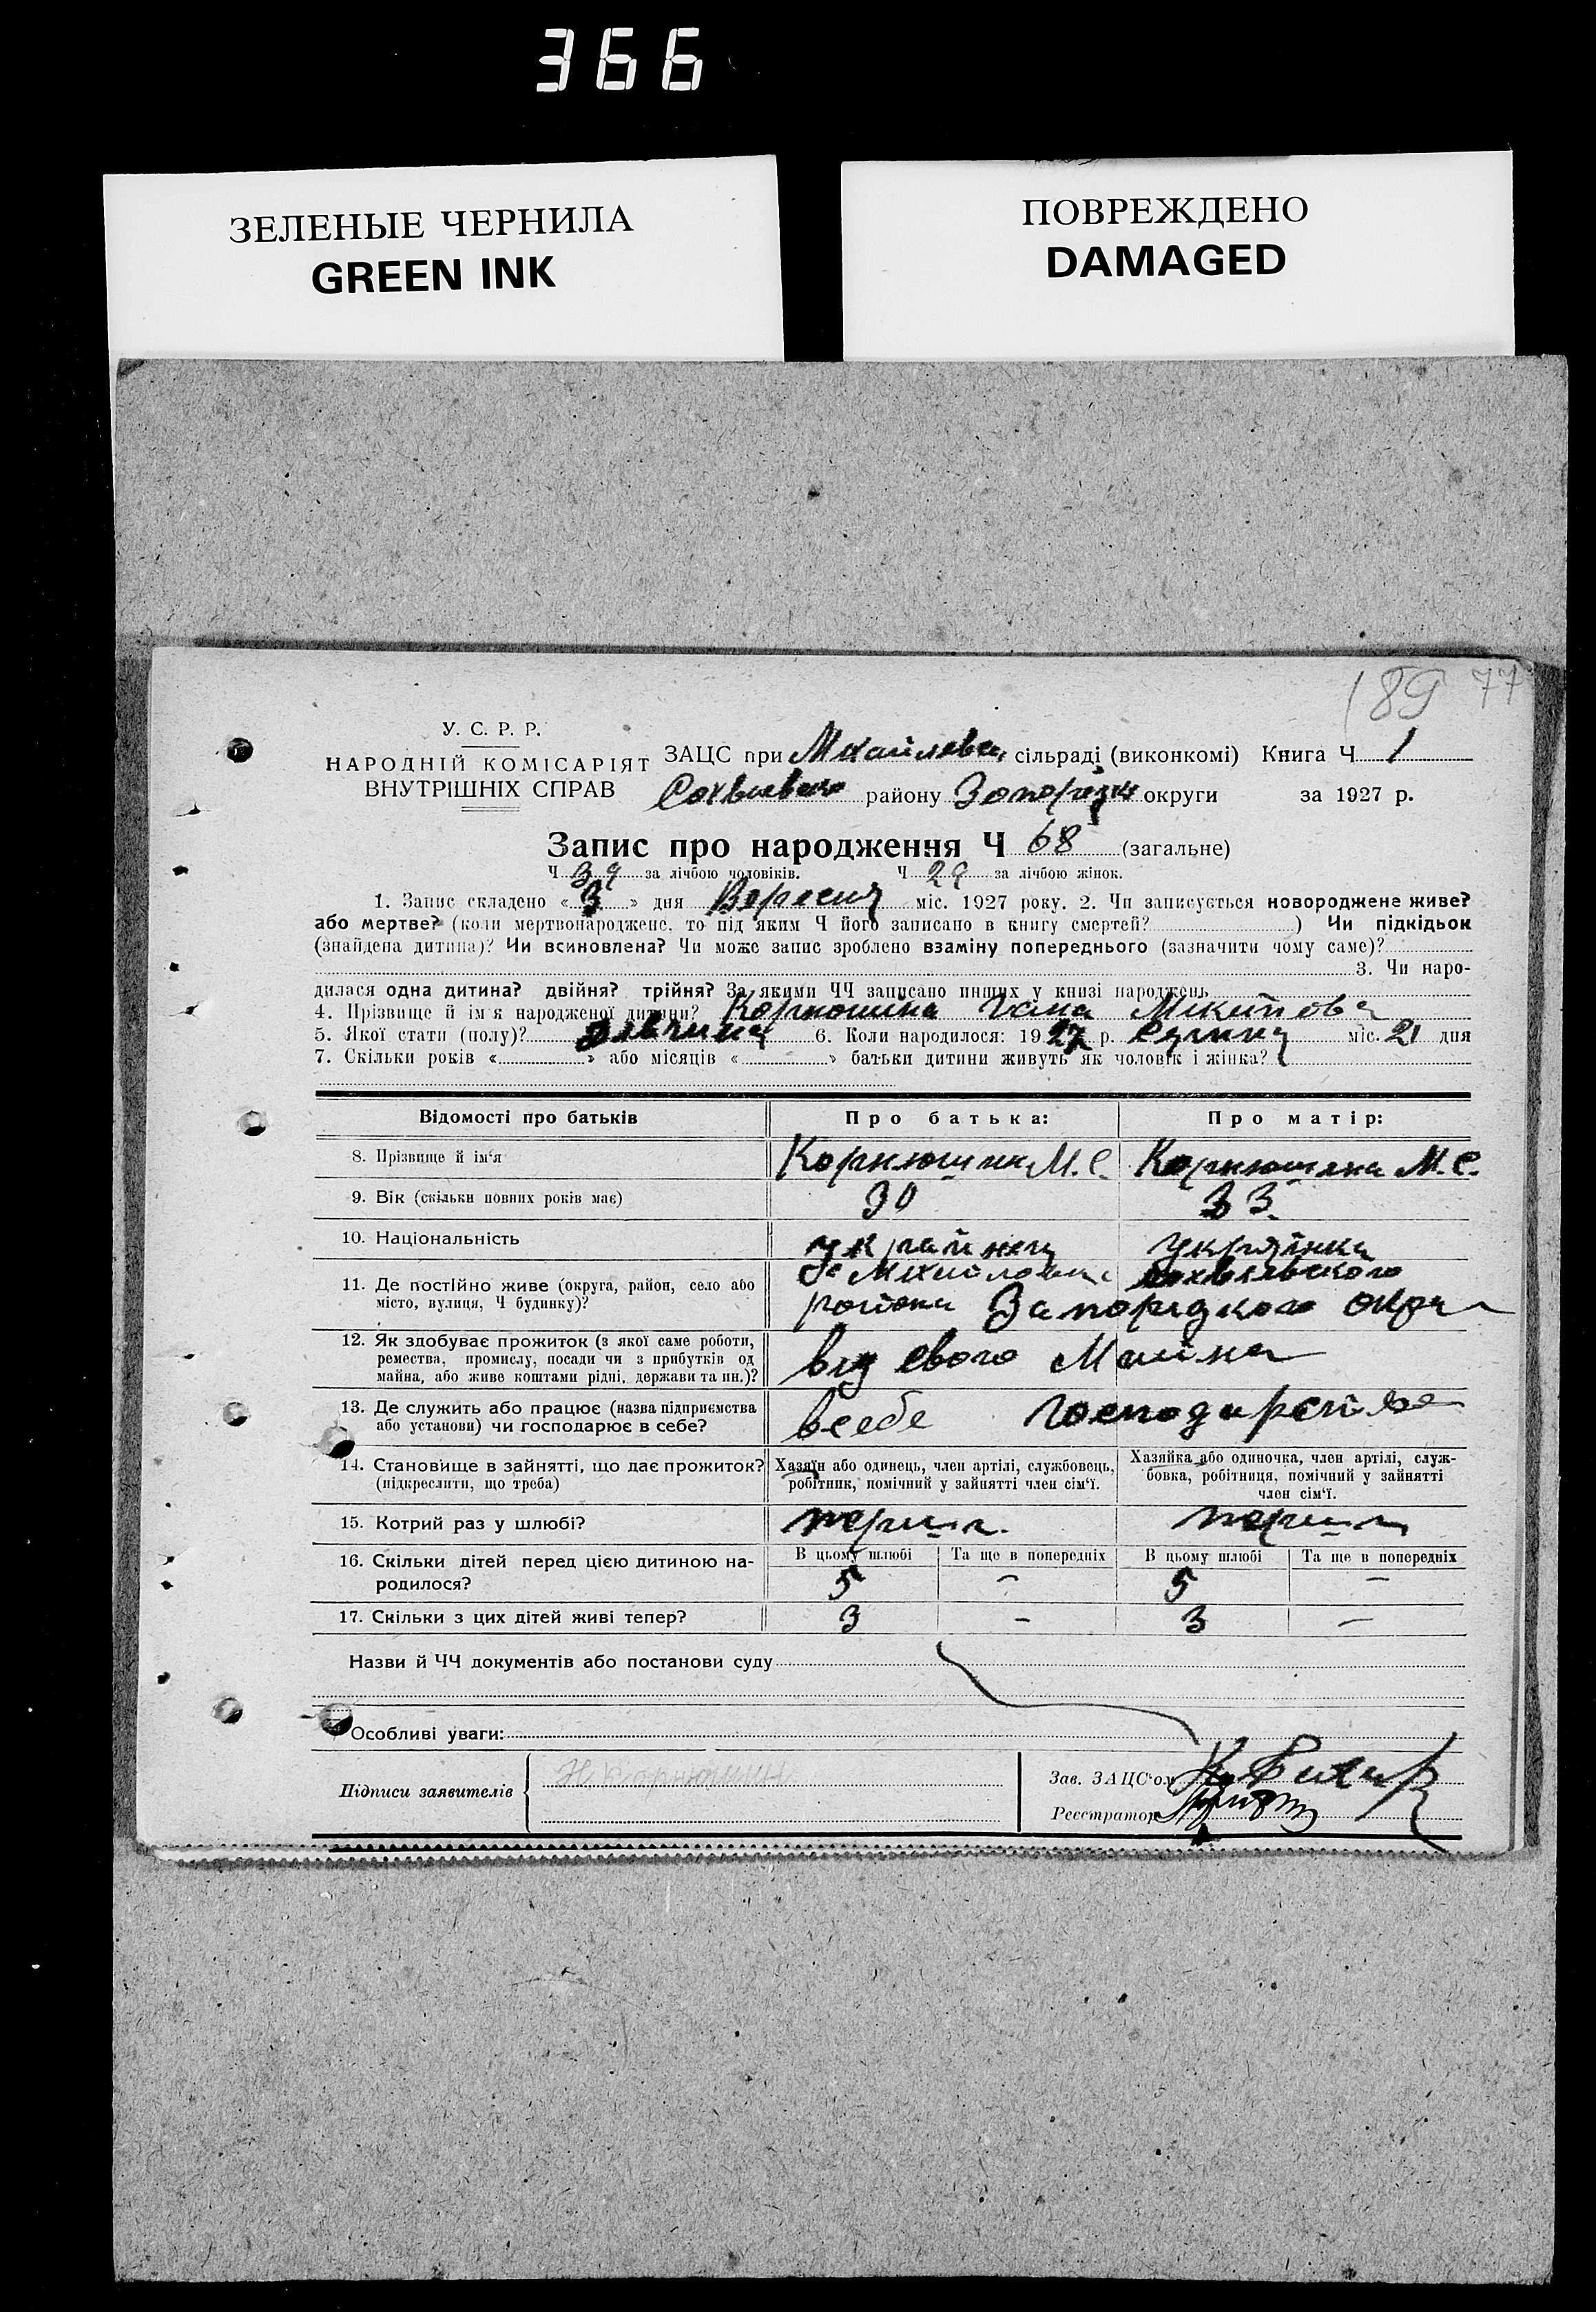 366
ЗЕЛЕНЫЕ ЧЕРНИЛА
GREEN INK
ПОВРЕЖДЕНО
DAMAGED
189 77
У. С. Р. Р.
НАРОДНІЙ КОМІСАРІЯТ
ВНУТРІШНІХ СПРАВ
ЗАЦС при сільраді (виконкомі) Книга Ч 1
району округи за 1927 р.
Запис про народження Ч 68 (загальне)
Ч 39 за лічбою чоловіків. Ч 29 за лічбою жінок.
1. Запис складено « 3 » дня Вересня міс. 1927 року. 2. Чи записується новороджене живе?
або мертве? (коли мертвонароджене, то під яким Ч його записано в книгу смертей? ) Чи підкідьок
(знайдена дитина)? Чи всиновлена? Чи може запис зроблено взаміну попереднього (зазначити чому саме)?
3. Чи наро-
дилася одна дитина? двійня? трійня? За якими ЧЧ записано инших у книзі народжень
4. Прізвище й ім'я народженої дитини? Корнюшина Гана Микитова
5. Якої стати (полу)? дівчина 6. Коли народилося: 1927 р. Серпня міс. 21 дня
7. Скільки років « » або місяців « » батьки дитини живуть як чоловік і жінка?
Відомості про батьків Про батька: Про матір:
8. Прізвище й ім'я Корнюшин М.С. Корнюшина М.С.
9. Вік (скільки повних років має) 30 33
10. Національність українец українка
11. Де постійно живе (округа, район, село або
місто, вулиця, Ч будинку)?
района Запоридкого окрг
12. Як здобуває прожиток (з якої саме роботи,
ремества, промислу, посади чи з прибутків од
майна, або живе коштами рідні, держави та ин.)?
від свого Майна
13. Де служить або працює (назва підприємства
або установи) чи господарює в себе?
в себе господарства
14. Становище в зайнятті, що дає прожиток?
(підкреслити, що треба)
Хазяїн або одинець, член артілі, службовець,
робітник, помічний у зайнятті член сім'ї.
Хазяйка або одиночка, член артілі, служ-
бовка, робітниця, помічний у зайнятті
член сім'ї.
15. Котрий раз у шлюбі?
16. Скільки дітей перед цією дитиною на-
родилося?
В цьому шлюбі Та ще в попередніх В цьому шлюбі Та ще в попередніх
5 – 5 –
17. Скільки з цих дітей живі тепер? 3 – 3 –
Назви й ЧЧ документів або постанови суду
Особливі уваги:
Підписи заявителів
Зав. ЗАЦС'ом
Реєстратор